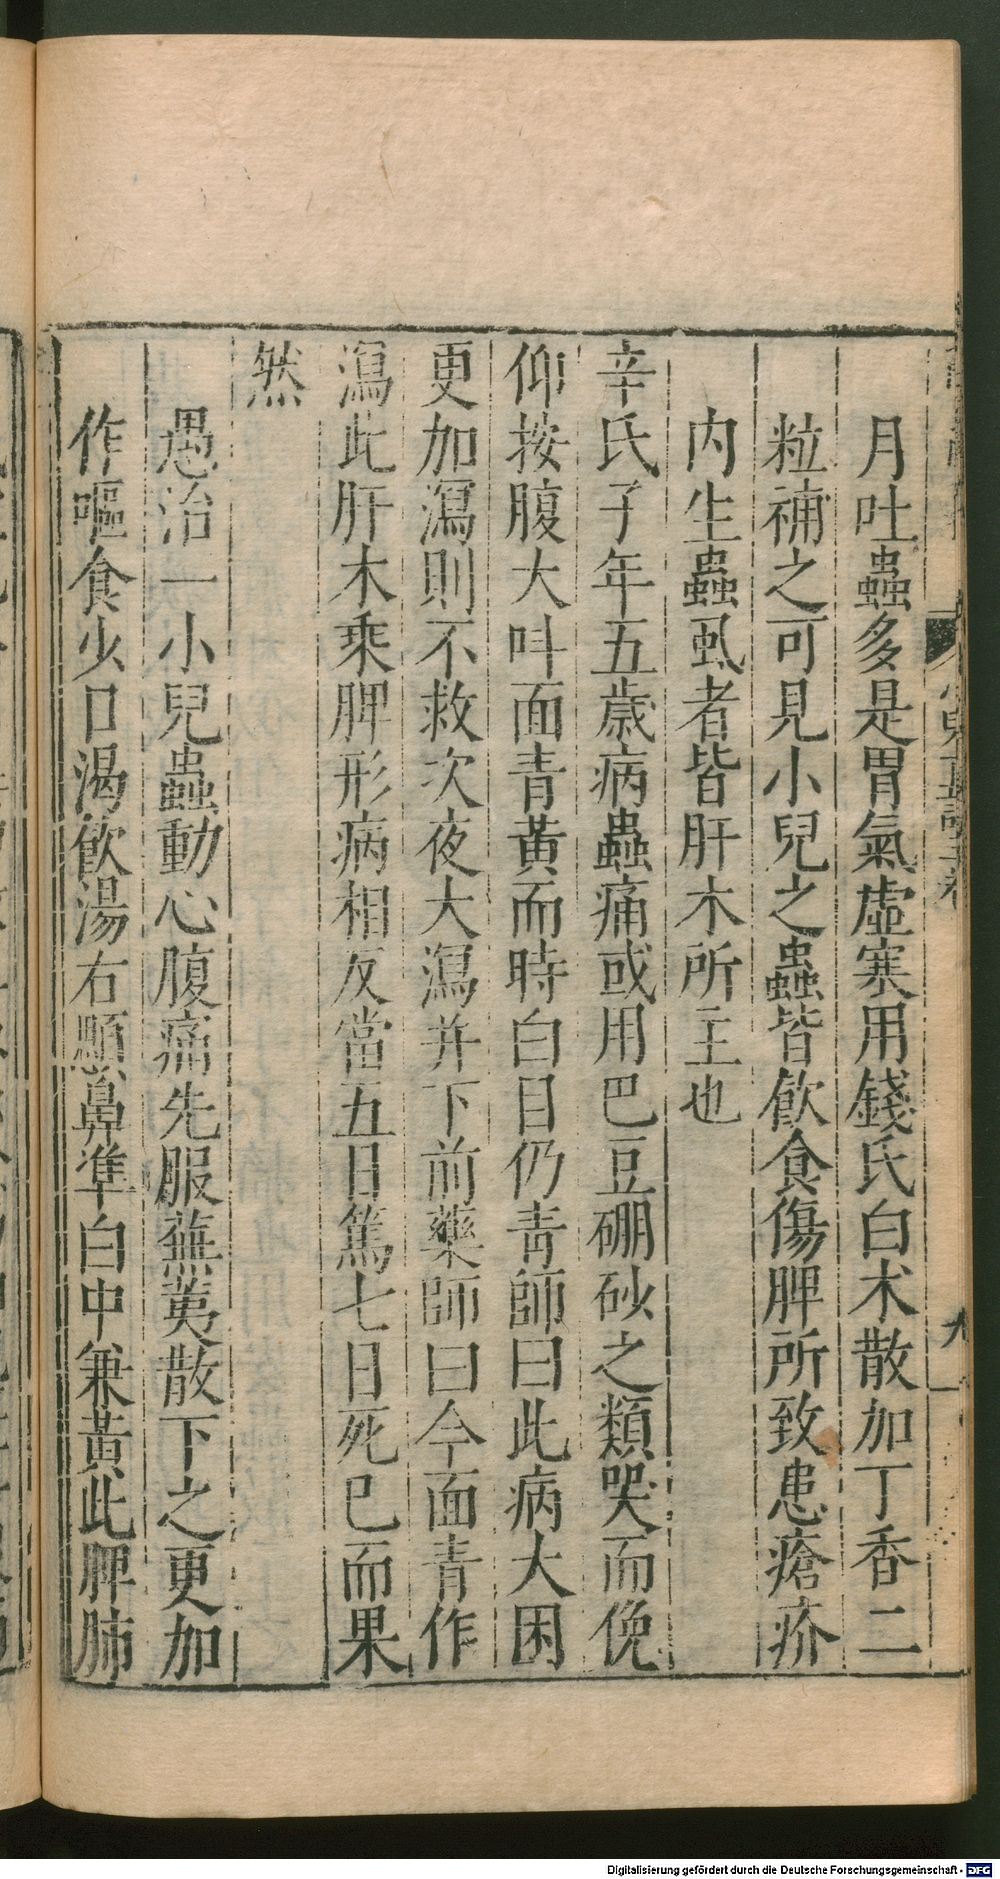 月吐蟲多是胃氣虛寒用錢氏白术散加丁香二
粒補之可見小兒之蟲皆飲食傷脾所致患瘡疥
内生蟲虱者皆肝木所主也
辛氏子年五歲病蟲痛或用巴豆硼砂之類哭而俛
仰按腹大呌面青黃而時白目仍青師曰此病大困
更加瀉則不救次夜大瀉并下前藥師曰今面青作
瀉此肝木乘脾形病相反當五日篤七日死已而果
然
愚治一小兒蟲動心腹痛先服蕪荑散下之更加
作嘔食少口渴飲湯右顋鼻準白中兼黃此脾肺
九
Digitalisierung gefördert durch die Deutsche Forschungsgemeinschaft - DFG